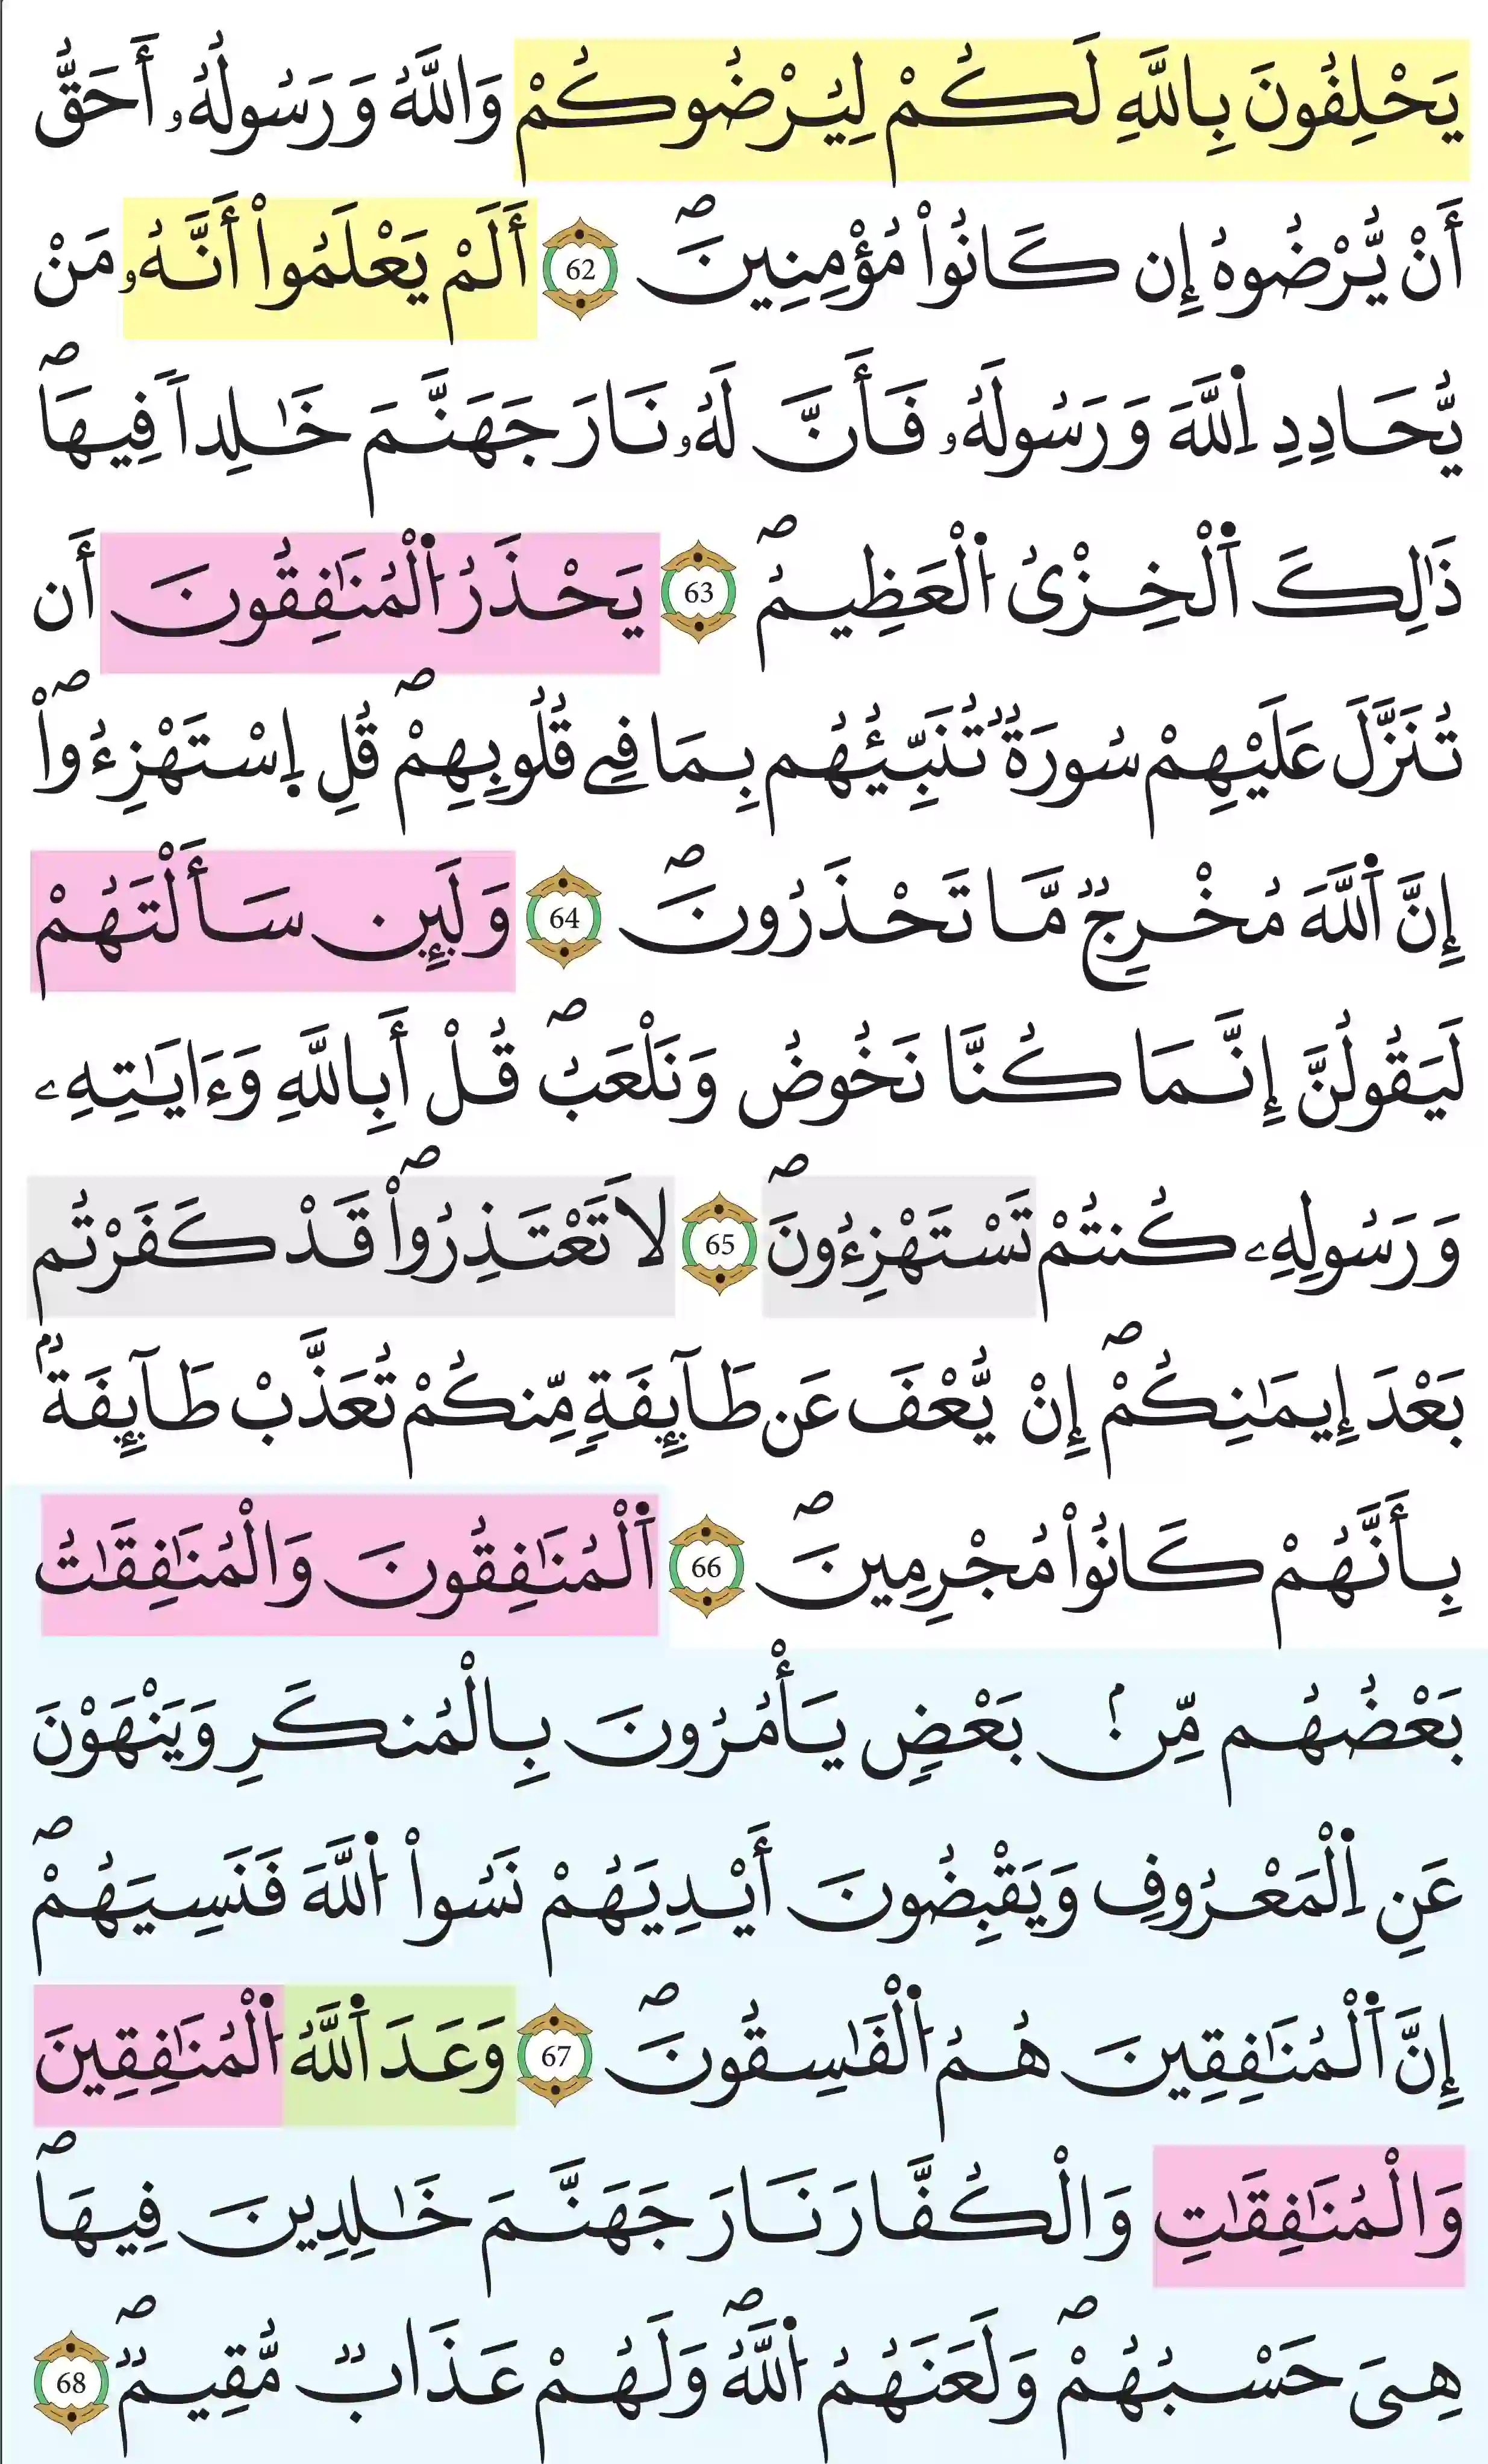 يَحْلِفُونَ بِاللَّهِ لَكُمْ لِيُرْضُوكُمْ وَاللَّهُ وَرَسُولُهُۥ أَحَقُّ
أَنْ يُّرْضُوهُ إِن كَانُواْ مُؤْمِنِينَۖ 62 أَلَمْ يَعْلَمُواْ أَنَّهُۥ مَنْ
يُّحَادِدِ اِ۬للَّهَ وَرَسُولَهُۥ فَأَنَّ لَهُۥ نَارَ جَهَنَّمَ خَٰلِداٗ فِيهَاۖ
ذَٰلِكَ اَ۬لْخِزْيُ اُ۬لْعَظِيمُۖ 63 يَحْذَرُ اُ۬لْمُنَٰفِقُونَ أَن
تُنَزَّلَ عَلَيْهِمْ سُورَةٞ تُنَبِّئُهُم بِمَا فِے قُلُوبِهِمْۖ قُلِ اِ۪سْتَهْزِءُوٓاْۖ
إِنَّ اَ۬للَّهَ مُخْرِجٞ مَّا تَحْذَرُونَۖ 64 وَلَئِن سَأَلْتَهُمْ
لَيَقُولُنَّ إِنَّمَا كُنَّا نَخُوضُ وَنَلْعَبُۖ قُلْ أَبِاللَّهِ وَءَايَٰتِهِۦ
وَرَسُولِهِۦ كُنتُمْ تَسْتَهْزِءُونَۖ 65 لَا تَعْتَذِرُواْۖ قَدْ كَفَرْتُم
بَعْدَ إِيمَٰنِكُمْۖ إِنْ يُّعْفَ عَن طَآئِفَةٖ مِّنكُمْ تُعَذَّبْ طَآئِفَةُۢ
بِأَنَّهُمْ كَانُواْ مُجْرِمِينَۖ 66 اَ۬لْمُنَٰفِقُونَ وَالْمُنَٰفِقَٰتُ
بَعْضُهُم مِّنۢ بَعْضٖ يَأْمُرُونَ بِالْمُنكَرِ وَيَنْهَوْنَ
عَنِ اِ۬لْمَعْرُوفِ وَيَقْبِضُونَ أَيْدِيَهُمْ نَسُواْ اُ۬للَّهَ فَنَسِيَهُمْۖ
إِنَّ اَ۬لْمُنَٰفِقِينَ هُمُ اُ۬لْفَٰسِقُونَۖ 67 وَعَدَ اَ۬للَّهُ اُ۬لْمُنَٰفِقِينَ
وَالْمُنَٰفِقَٰتِ وَالْكُفَّارَ نَارَ جَهَنَّمَ خَٰلِدِينَ فِيهَاۖ
هِيَ حَسْبُهُمْۖ وَلَعَنَهُمُ اُ۬للَّهُۖ وَلَهُمْ عَذَابٞ مُّقِيمٞۖ 68